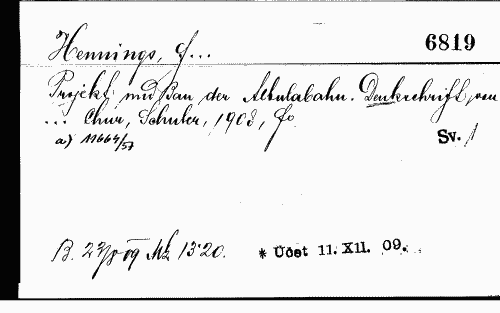 6819
Hennings, F...
Projekt und Bau der Albulabahn. Denkschrift, von
... Chur, Schuler, 1908, Fo
a) 11664/57
Sv. 1
B. 23/8 09 Mk 13·20.
* Üdet 11. XII. 09.